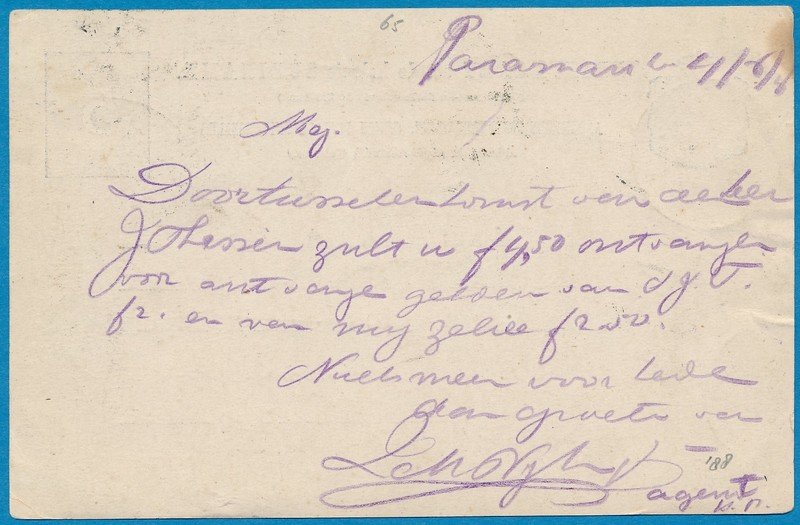 65
Paramaribo 4/6/8
Mej.
Door tusschenkomst van de heer
J Thessen zult u f 4,50 ontvangen
voor ontvange gelden van d
f 2. en van mij zelve f 2.50.
Niets meer voor heden
dan groete van
'88
agent